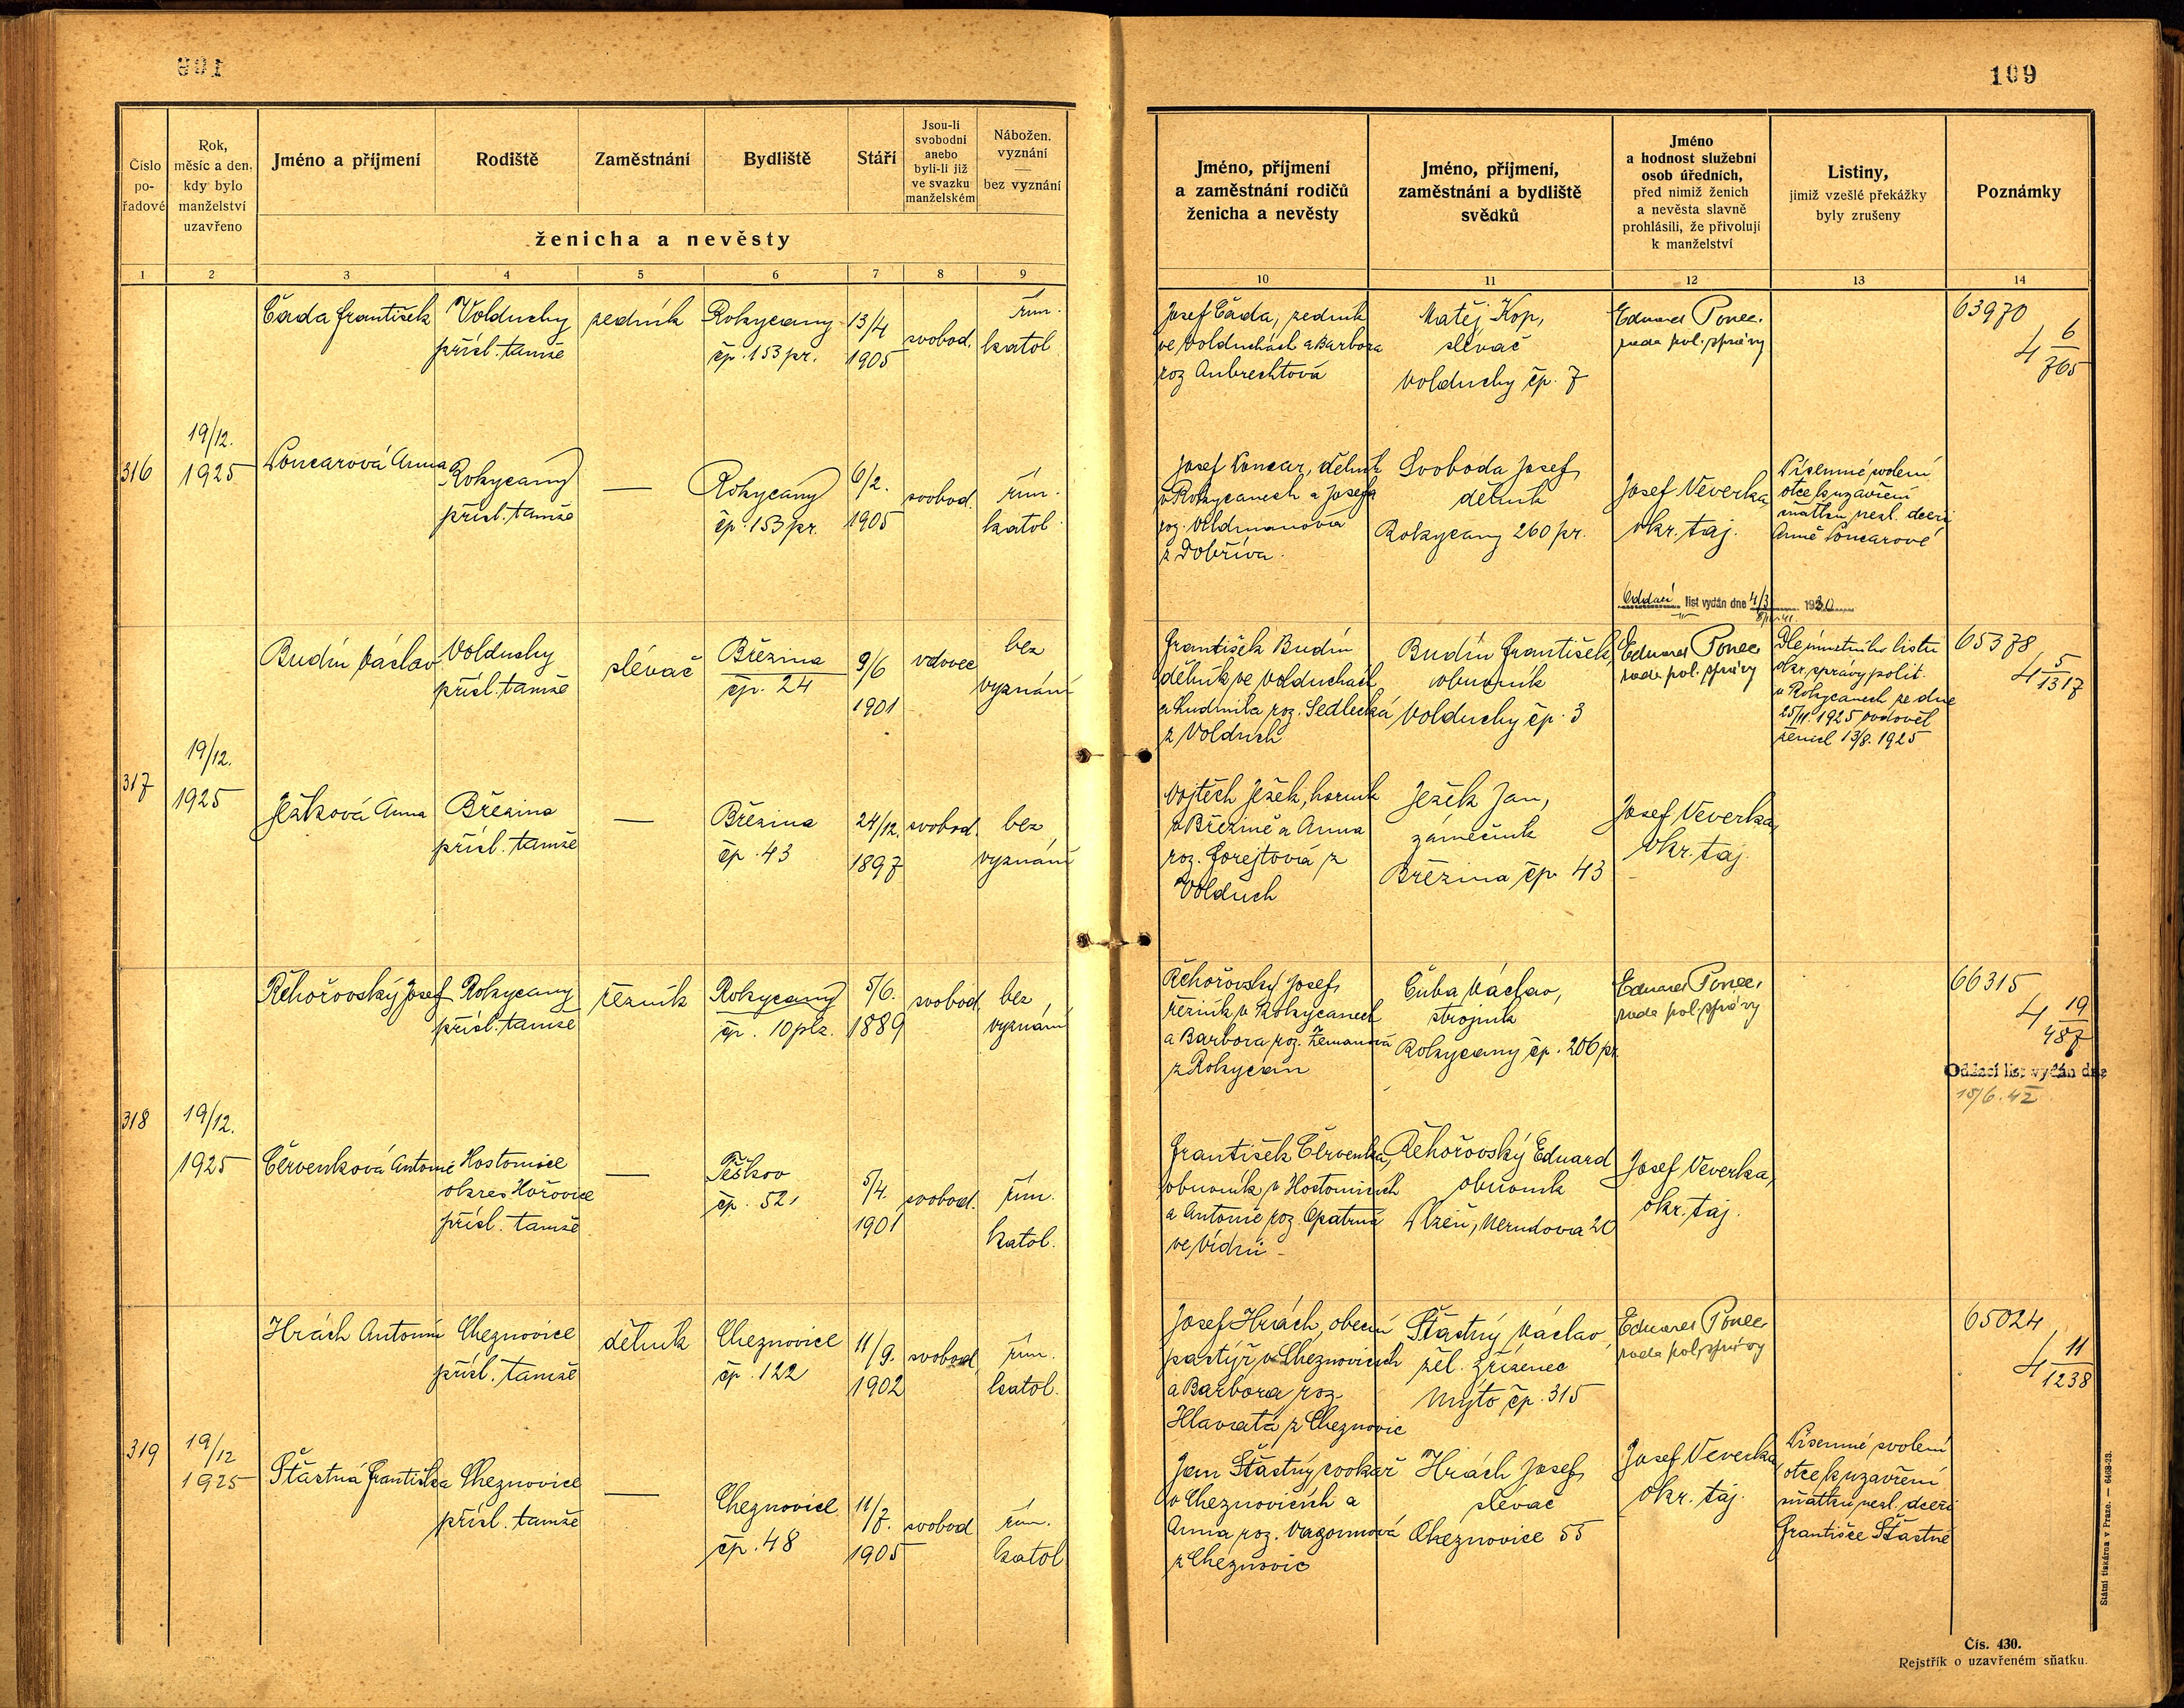 109
Číslo pořadové
Rok, měsíc a den, kdy bylo manželství uzavřeno
Jméno a příjmení
Rodiště
Zaměstnání
Bydliště
Stáří
Jsou-li svobodní anebo byli-li již ve svazku manželském
Nábožen. vyznání
bez vyznání
ženicha a nevěsty
Jméno, příjmení a zaměstnání rodičů ženicha a nevěsty
Jméno, příjmení, zaměstnání a bydliště svědků
Jméno a hodnost služební osob úředních, před nimiž ženich a nevěsta slavně prohlásili, že přivolují k manželství
Listiny, jimiž vzešlé překážky byly zrušeny
Poznámky
1 2 3 4 5 6 7 8 9 10 11 12 13 14
316
19/12. 1925
Čada František
Volduchy
přísl. tamže
zedník
Rokycany
čp. 153 pr.
13/4 1905
svobod.
řím. katol.
Josef Čada, zedník
ve Volduchách a Barbora
roz Aubrechtová
Matěj Kop,
slévač
Volduchy čp. 7
Eduard Ponec,
rada pol. správy
63970
4 6/765
Loncarová Anna
Rokycany
přísl. tamže
—
Rokycany
čp. 153 pr.
6/2. 1905
svobod.
řím. katol.
Josef Loncar, dělník
v Rokycanech a Josefa
roz. Voldmanová
z Dobříva.
Svoboda Josef,
dělník
Rokycany 260 pr.
Josef Veverka,
okr. taj.
Písemné svolení
otce k uzavření
sňatku nezl. dceři
Anně Loncarové
Oddací list vydán dne 4/3 1930
317
19/12. 1925
Budín Václav
Volduchy
přísl. tamže
slévač
Březina
čp. 24
9/6 1901
vdovec
bez vyznání
František Budín
dělník ve Volduchách
a Ludmila roz. Sedlecká
z Volduch
Budín František,
obuvník
Volduchy čp. 3
Eduard Ponec
rada pol. správy
Dle úmrtního listu
okr. správy polit.
v Rokycanech ze dne
25/11. 1925 ovdověl
ženich 13/8. 1925
65378
4 5/1317
Ježková Anna
Březina
přísl. tamže
—
Březina
čp. 43
24/12. 1897
svobod.
bez vyznání
Vojtěch Ježek, horník
v Březině a Anna
roz. Forejtová z
Volduch
Ježek Jan,
zámečník
Březina čp. 43
Josef Veverka,
okr. taj.
318
19/12. 1925
Řehořovský Josef
Rokycany
přísl. tamže
řezník
Rokycany
čp. 10 plz.
5/6. 1889
svobod.
bez vyznání
Řehořovský Josef,
řezník v Rokycanech
a Barbora roz. Zemanová
z Rokycan
Čuba Václav,
strojník
Rokycany čp. 206 pr.
Eduard Ponec,
rada pol. správy
66315
4 19/487
Oddací list vydán dne
15/6. 42
Červenková Antonie
Hostomice
okres Hořovice
přísl. tamže
—
Těškov
čp. 52
5/4. 1901
svobod.
řím. katol.
František Červenka,
obuvník v Hostomicích
a Antonie roz. Opatrná
ve Vidni
Řehořovský Eduard
obuvník
Plzeň, Nerudova 20
Josef Veverka,
okr. taj.
319
19/12 1925
Hrách Antonín
Cheznovice
přísl. tamže
dělník
Cheznovice
čp. 122
11/9. 1902
svobod.
řím. katol.
Josef Hrách, obecní
pastýř v Cheznovicích
a Barbora roz.
Hlavatá z Cheznovic
Šťastný Václav,
žel. zřízenec
Mýto čp. 315
Eduard Ponec
rada pol. správy
65024
4 11/1238
Šťastná Františka
Cheznovice
přísl. tamže
—
Cheznovice
čp. 48
11/7. 1905
svobod
řím. katol
Jan Šťastný cvokař
v Cheznovicích a
Anna roz. Vagonnová
z Cheznovic
Hrách Josef,
slévač
Cheznovice 55
Josef Veverka,
okr. taj.
Písemné svolení
otce k uzavření
sňatku nezl. dceři
Františce Šťastné
Čís. 430.
Rejstřík o uzavřeném sňatku.
Státní tiskárna v Praze. — 6468-23.